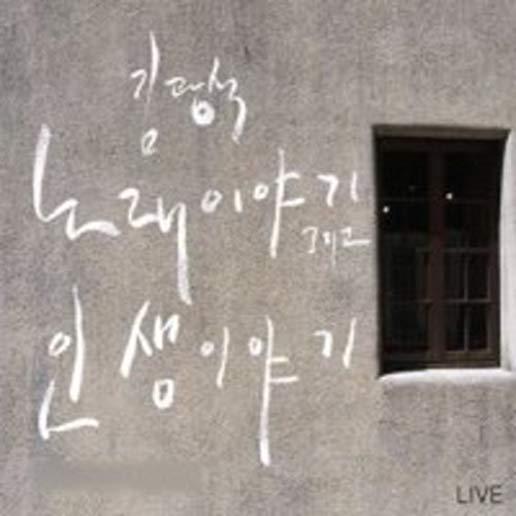 김광석
노래이야기
그리고
인생이야기
LIVE